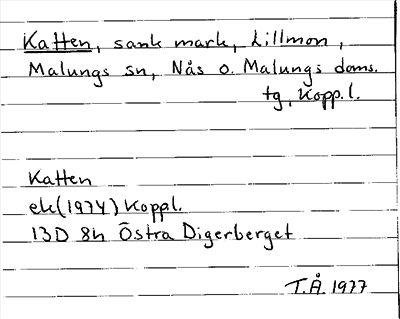 Katten, sank mark, Lillmon,
Malungs sn, Nås o. Malungs doms.
tg, Kopp.l.
Katten
ek(1974) Koppl.
13D 8h Östra Digerberget
T.Å. 1977